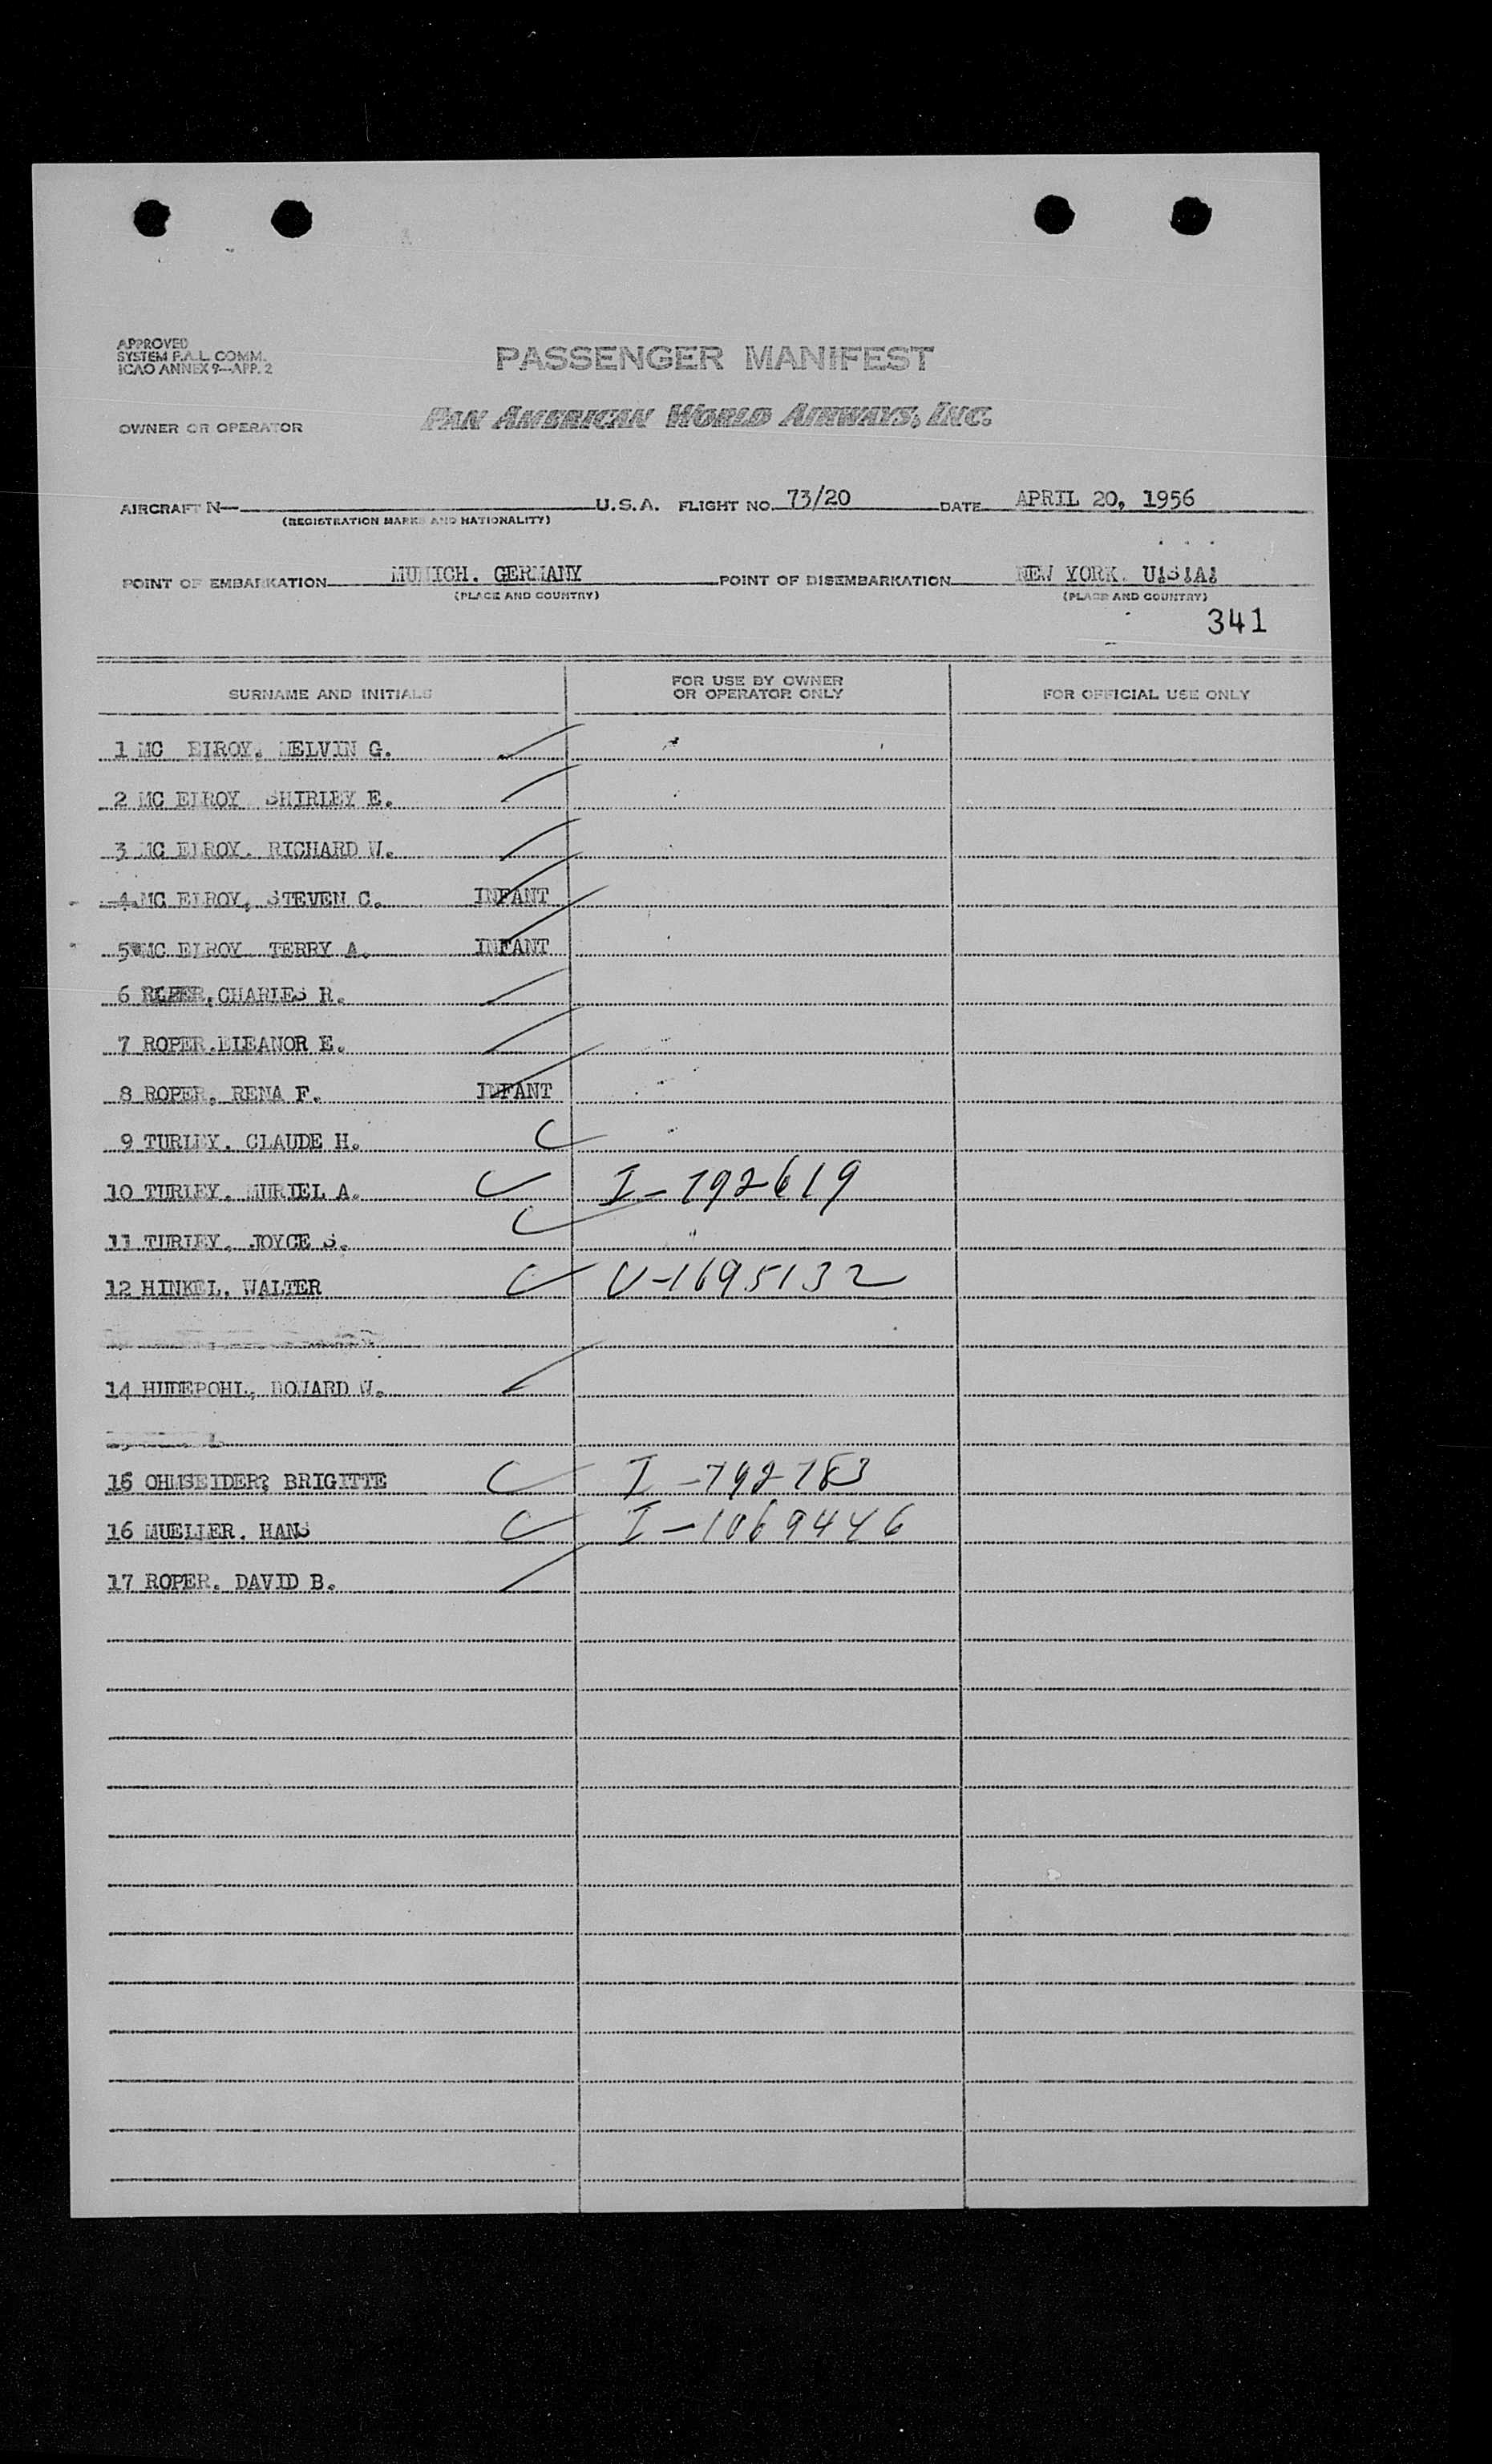 APPROVED
SYSTEM F.A.L. COMM.
ICAO ANNEX 9—APP. 2
PASSENGER MANIFEST
OWNER OR OPERATOR
PAN AMERICAN WORLD AIRWAYS, INC.
AIRCRAFT N— U.S.A. FLIGHT NO. 73/20 DATE APRIL 20, 1956
(REGISTRATION MARKS AND NATIONALITY)
POINT OF EMBARKATION MUNICH. GERMANY POINT OF DISEMBARKATION NEW YORK. U.S.A.
(PLACE AND COUNTRY) (PLACE AND COUNTRY)
341
SURNAME AND INITIALS FOR USE BY OWNER OR OPERATOR ONLY FOR OFFICIAL USE ONLY
1 MC ELROY. MELVIN G.
2 MC ELROY SHIRLEY E.
3 MC ELROY. RICHARD W.
4 MC ELROY, STEVEN C. INFANT
5 MC ELROY TERRY A. INFANT
6 ROPER, CHARLES R.
7 ROPER. ELEANOR E.
8 ROPER, RENA F. INFANT
9 TURLEY. CLAUDE H.
10 TURLEY. MURIEL A. I-792619
11 TURLEY. JOYCE S.
12 HINKEL. WALTER V-1695132
14 HUDEPOHL, HOWARD W.
15 OHMSEIDER? BRIGITTE I-792783
16 MUELLER. HANS I-1069446
17 ROPER. DAVID B.